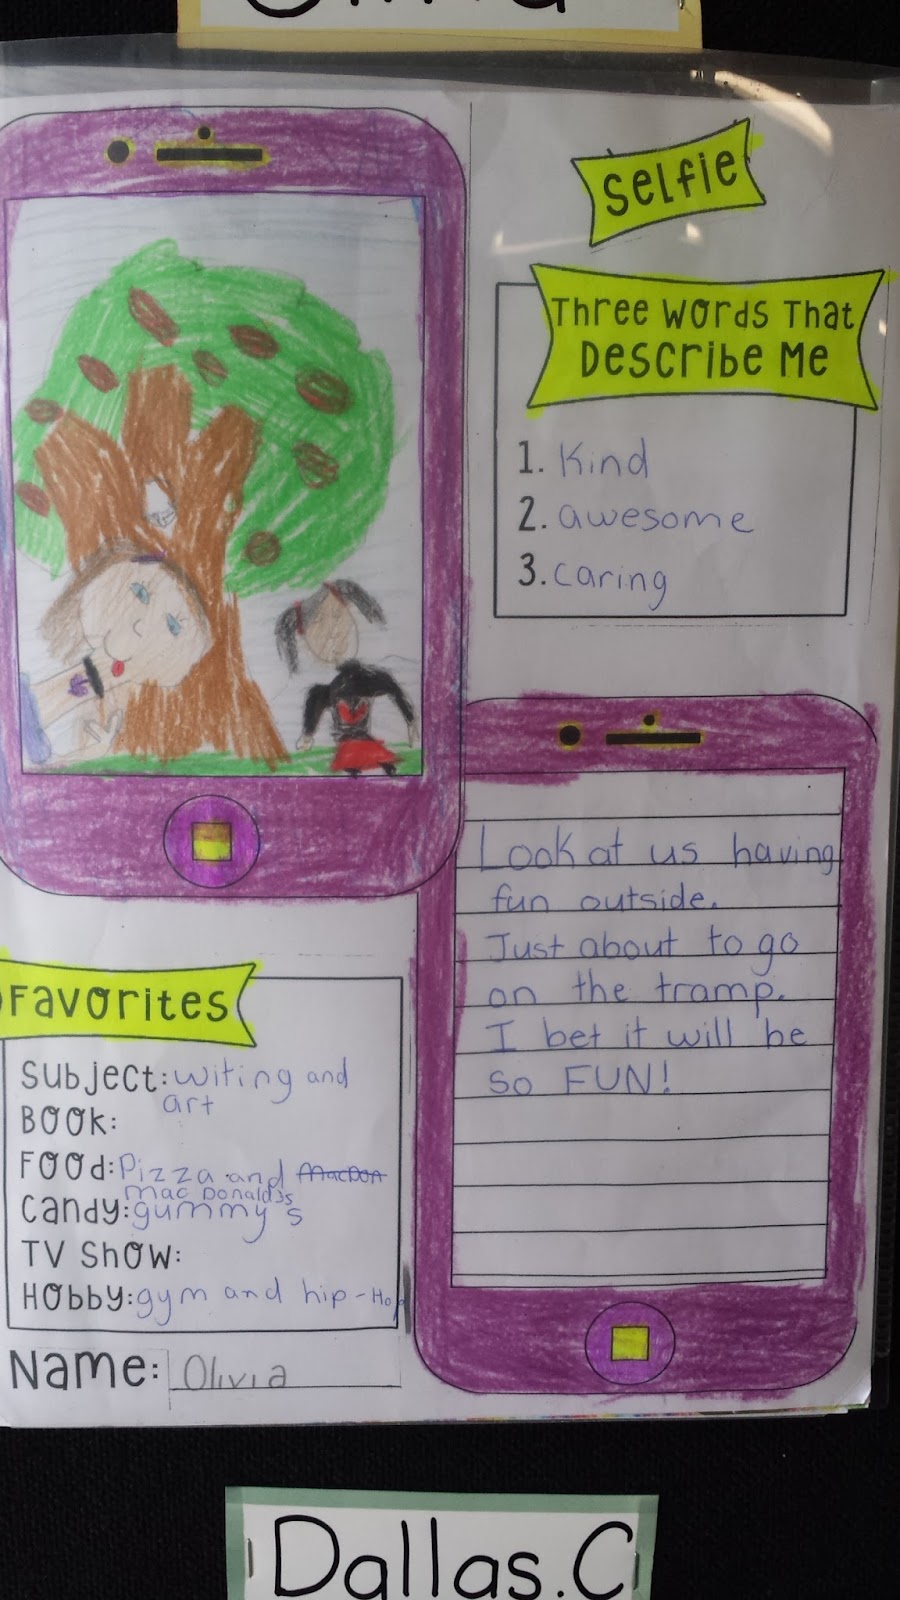 Selfie
Three Words That
Describe Me
1. Kind
2. awesome
3. caring
Look at us having
fun outside.
Just about to go
on the tramp.
I bet it will be
so FUN!
Favorites
Subject: writing and
art
Book:
Food: Pizza and
Mac Donald's
Candy: gummy's
TV Show:
Hobby: gym and hip-Hop
Name: Olivia
Dallas.C